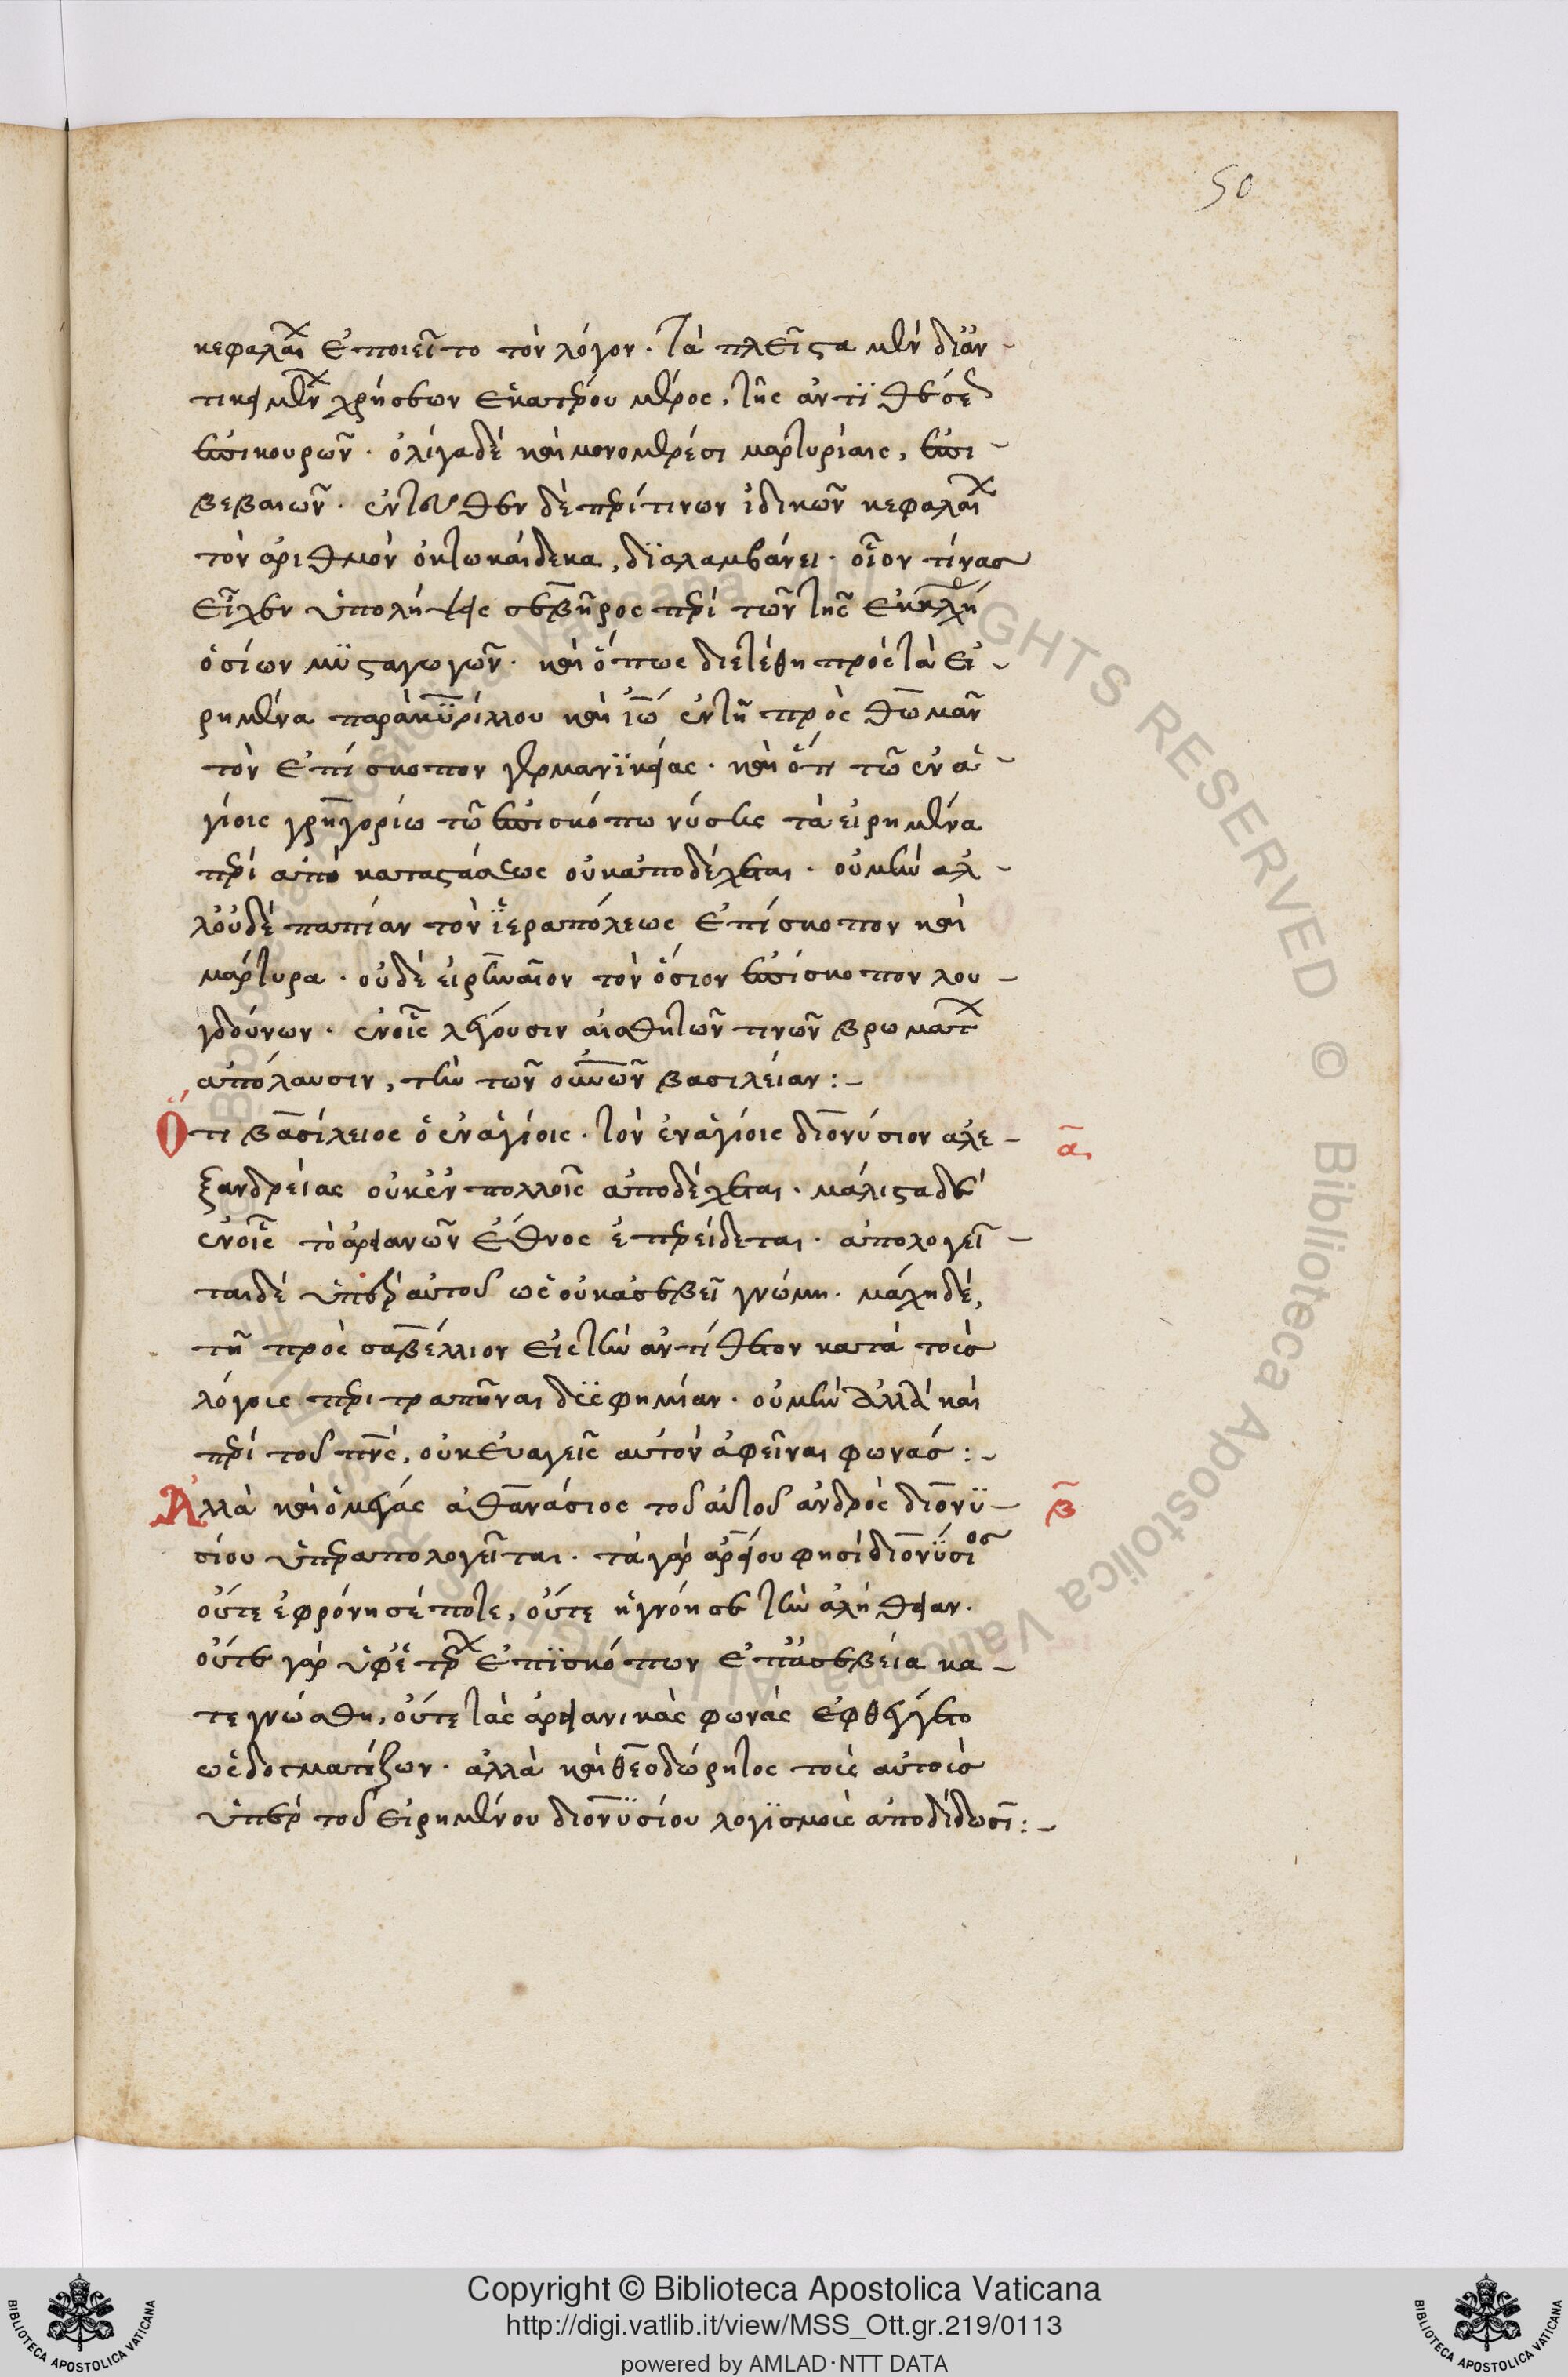 50
κεφαλαί ἐποιεῖτο τὸν λόγον. τὰ πλεῖστα μὲν δι' ἀν-
τικειμένων χρήσεων ἑκατέρου μέρος, τῆς ἀντιθέσεως
ἐπικουρῶν. ὀλίγα δὲ καὶ μονομερέσι μαρτυρίαις, ἐπι-
βεβαιῶν. ἐντεῦθεν δὲ περί τινων ἰδικῶν κεφαλαί
τὸν ἀριθμὸν ὀκτωκαίδεκα, διαλαμβάνει. οἷον τίνας
εἶχεν ὑπολήψεις σεβῆρος περὶ τῶν τῆς ἐκκλη
ὁσίων μυσταγωγῶν. καὶ ὅπως διετέθη πρὸς τὰ εἰ-
ρημένα παρὰ κυρίλλου καὶ ἰω ἐν τῇ πρὸς θωμᾶν
τὸν ἐπίσκοπον γερμανικείας. καὶ ὅτι τῶ ἐν ἁ-
γίοις γρηγορίω τῶ ἐπισκόπω νύσης τὰ εἰρημένα
περὶ ἀποκαταστάσεως οὐκ ἀποδέχεται. οὐ μὴν ἀλ-
λ' οὐδὲ παπίαν τὸν ἱεραπόλεως ἐπίσκοπον καὶ
μάρτυρα. οὐδὲ εἰρηναῖον τὸν ὅσιον ἐπίσκοπον λου-
γδούνων. ἐν οἷς λέγουσιν αἰσθητῶν τινῶν βρωμάτ
ἀπόλαυσιν, τὴν τῶν οὐνῶν βασιλείαν:-
Ὅτι βασίλειος ὁ ἐν ἁγίοις. τὸν ἐν ἁγίοις διονύσιον ἀλε- α
ξανδρείας οὐκ ἐν πολλοῖς ἀποδέχεται. μάλιστα δὲ
ἐν οἷς τὸ ἀρειανῶν ἔθνος ἐπερείδεται. ἀπολογεῖ-
ται δὲ ὑπὲρ αὐτοῦ ὡς οὐκ ἀσεβεῖ γνώμη. μάχη δὲ,
τῇ πρὸς σαβέλλιον εἰς τὴν ἀντίθετον κατὰ τοὺς
λόγους περιτραπῆναι δυσφημίαν. οὐ μὴν ἀλλὰ καὶ
περὶ τοῦ πνς, οὐκ εὐαγεῖς αὐτὸν ἀφεῖναι φωνάς:-
Ἀλλὰ καὶ ὁ μέγας ἀθανάσιος τοῦ αὐτοῦ ἀνδρὸς διονυ- β
σίου ὑπεραπολογεῖται. τὰ γὰρ ἀρείου φησὶ διονύσιος
οὔτε ἐφρόνησέ ποτε, οὔτε ἠγνόησε τὴν ἀλήθειαν.
οὔτε γὰρ ὑφ' ἑτέρ ἐπισκόπων ἐπ' ἀσεβεία κα-
τεγνώσθη, οὔτε τὰς ἀρειανικὰς φωνὰς ἐφθέγγετο
ὡς δογματίζων. ἀλλὰ καὶ θεοδώρητος τοὺς αὐτοὺς
ὑπὲρ τοῦ εἰρημένου διονυσίου λογισμοὺς ἀποδίδωσι:-
Copyright © Biblioteca Apostolica Vaticana
http://digi.vatlib.it/view/MSS_Ott.gr.219/0113
powered by AMLAD·NTT DATA
BIBLIOTECA APOSTOLICA VATICANA
BIBLIOTECA APOSTOLICA VATICANA